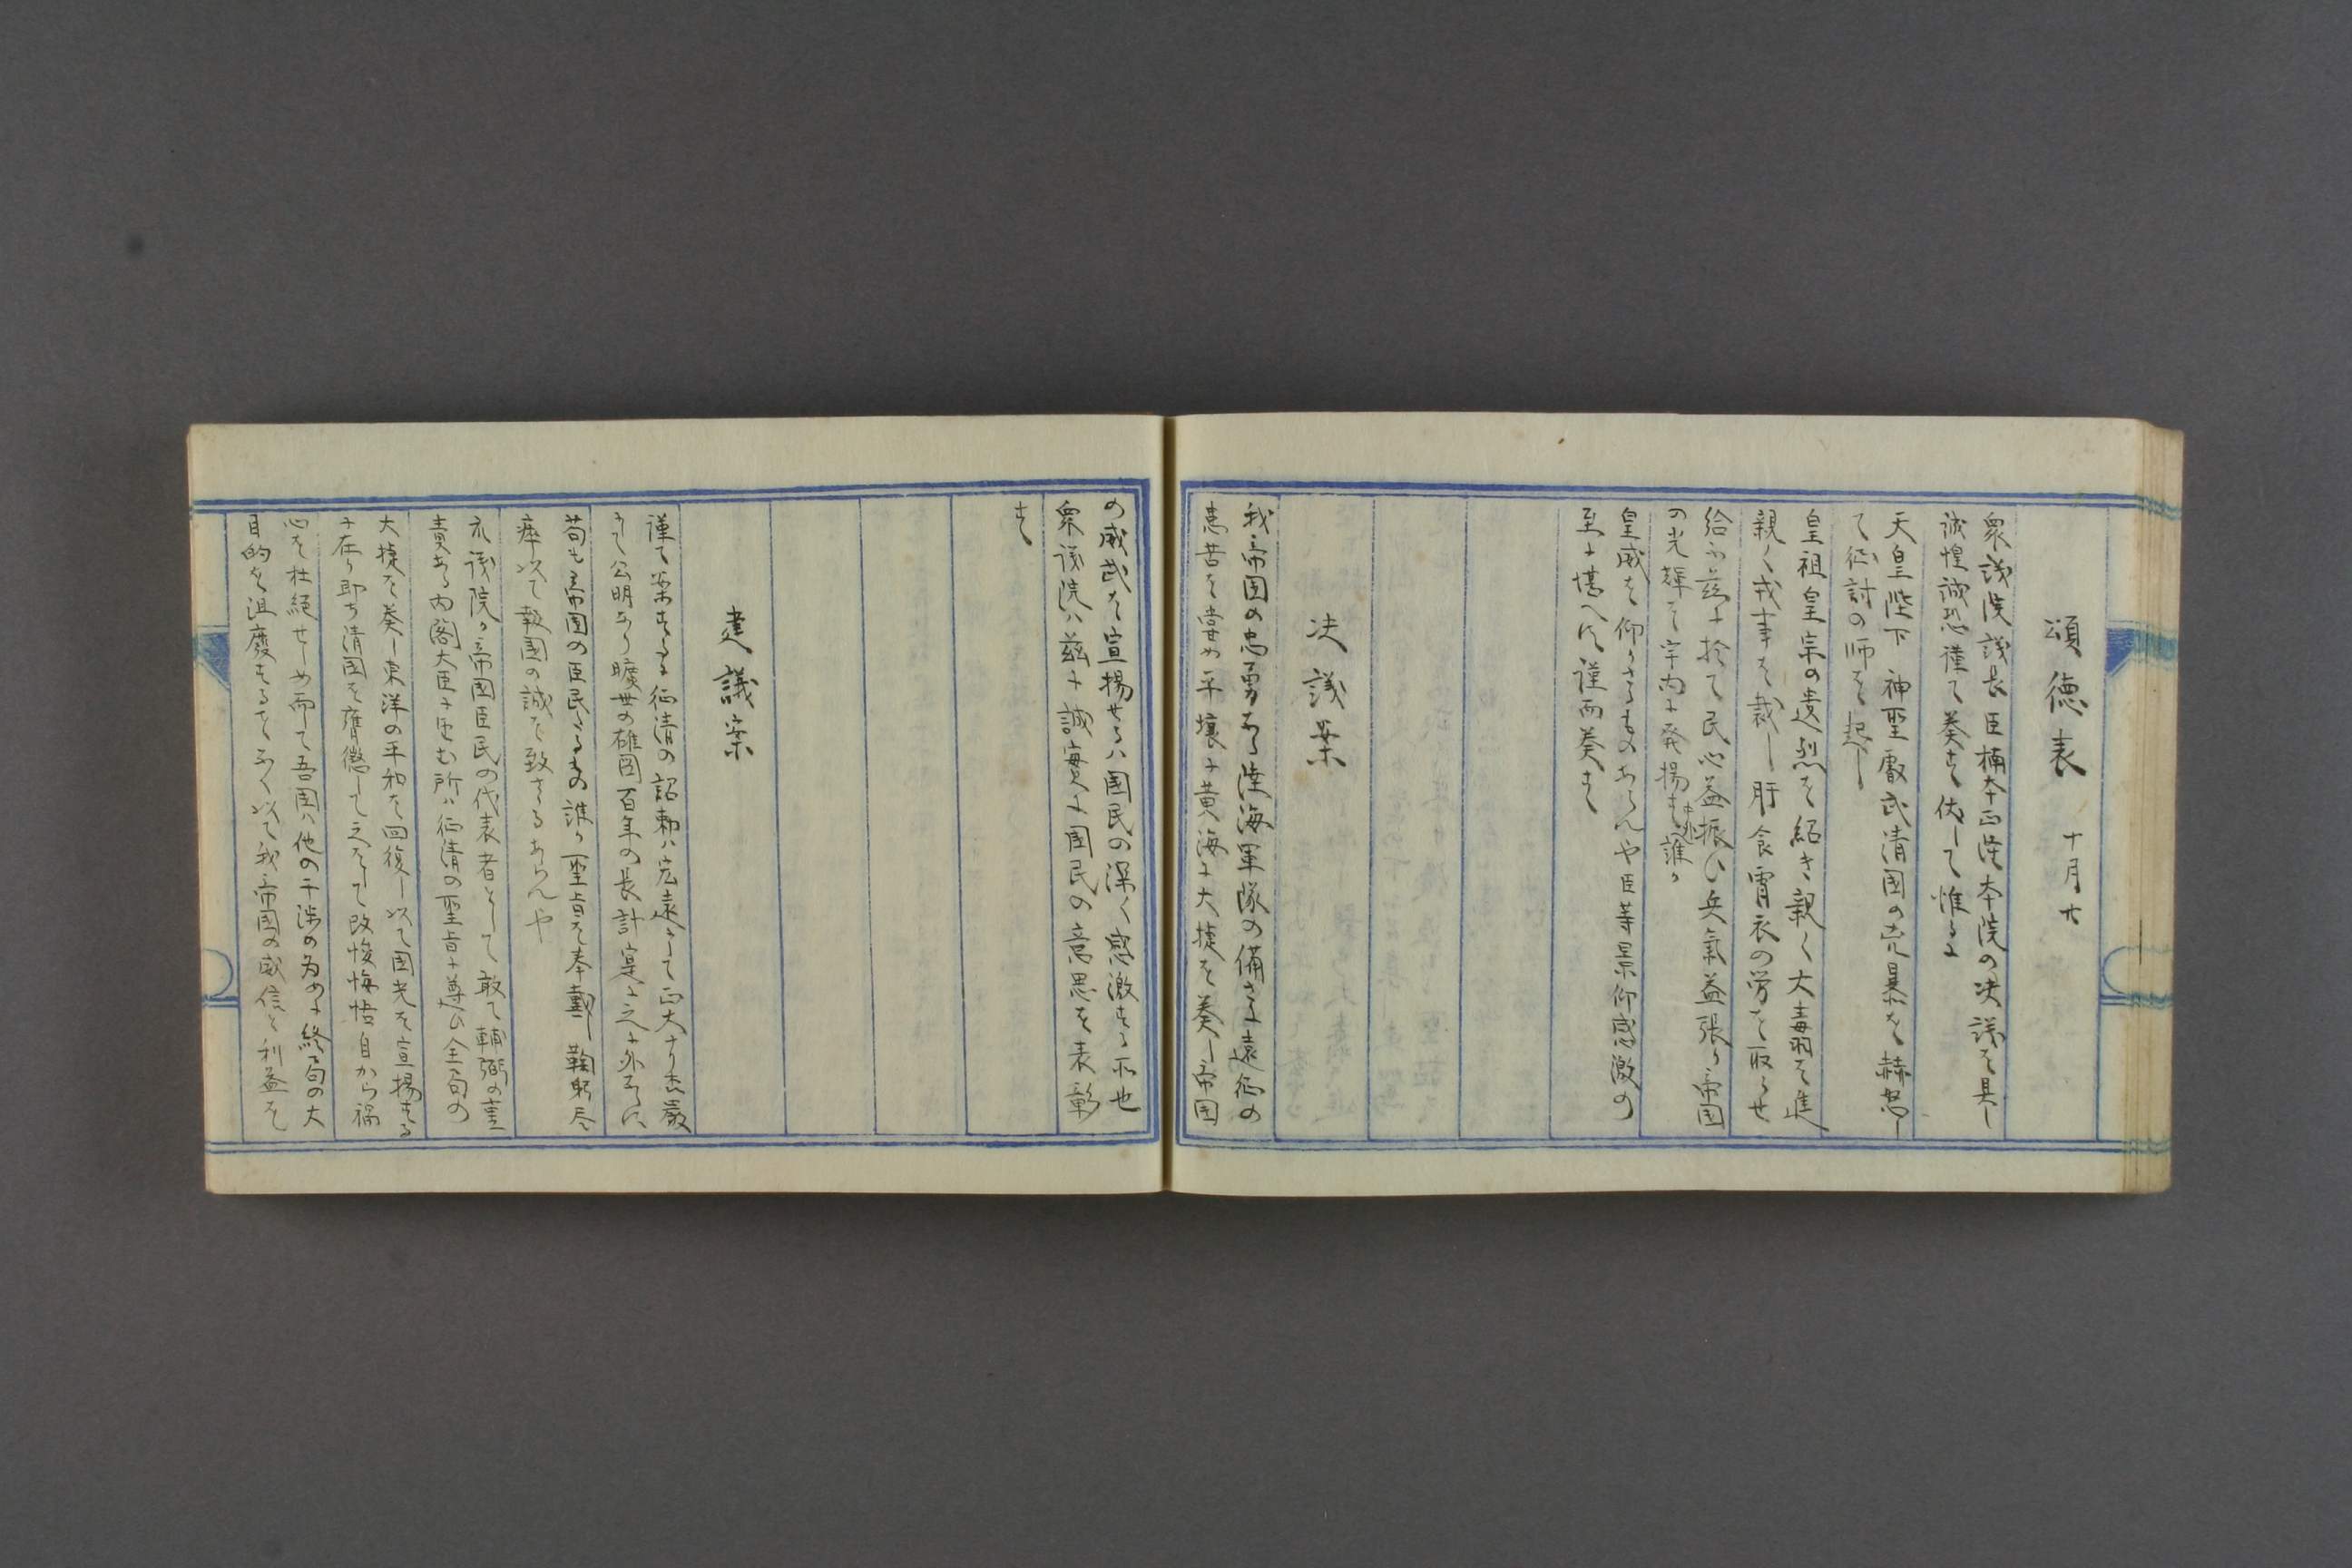 頌徳表　十月廿
衆議院議長臣楠本正隆本院の決議を具し
誠惶誠恐謹て奏す伏して惟るに
天皇陛下　神聖叡武清国の兇暴を赫怒し
て征討の師を起し
皇祖皇宗の遺烈を紹き親く大纛を進
親く戎事を裁し肝食宵衣の労を取らせ
給ふ茲に於て民心益振ひ兵氣益張り帝国
の光輝を宇内に発揚す中外誰か
皇威を仰かさるものあらんや臣等景仰感激の
至に堪へす謹而奏す
決議案
我帝国の忠勇なる陸海軍隊の備さに遠征の
患苦を嘗め平壌に黄海に大捷を奏し帝国
の威武を宣揚せるハ国民の深く感激する所也
衆議院ハ茲に誠實に国民の意思を表彰
す
建議案
謹て案するに征清の詔勅ハ宏遠にして正大なり森嚴
にして公明なり曠世の雄図百年の長計寔に之に外ならす
苟も帝国の臣民たるもの誰か聖旨を奉戴し鞠躬尽
瘁以て報国の誠を致さゝるあらんや
凡議院ハ帝国臣民の代表者として敢て輔弼の重
責ある内閣大臣に望む所ハ征清の聖旨に遵ひ全局の
大捷を奏し東洋の平和を回復し以て国光を宣揚する
に在り即ち清国を膺懲して之をして改悛悔悟自から禍
心を杜絶せしめ而して吾国ハ他の干渉の為めに終局の大
目的を沮廢するなく以て我帝国の威信と利益を